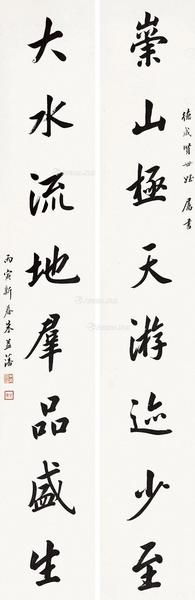 德成賢世姪屬書
崇山極天游迹少至
大水流地羣品盛生
丙寅新春朱益藩